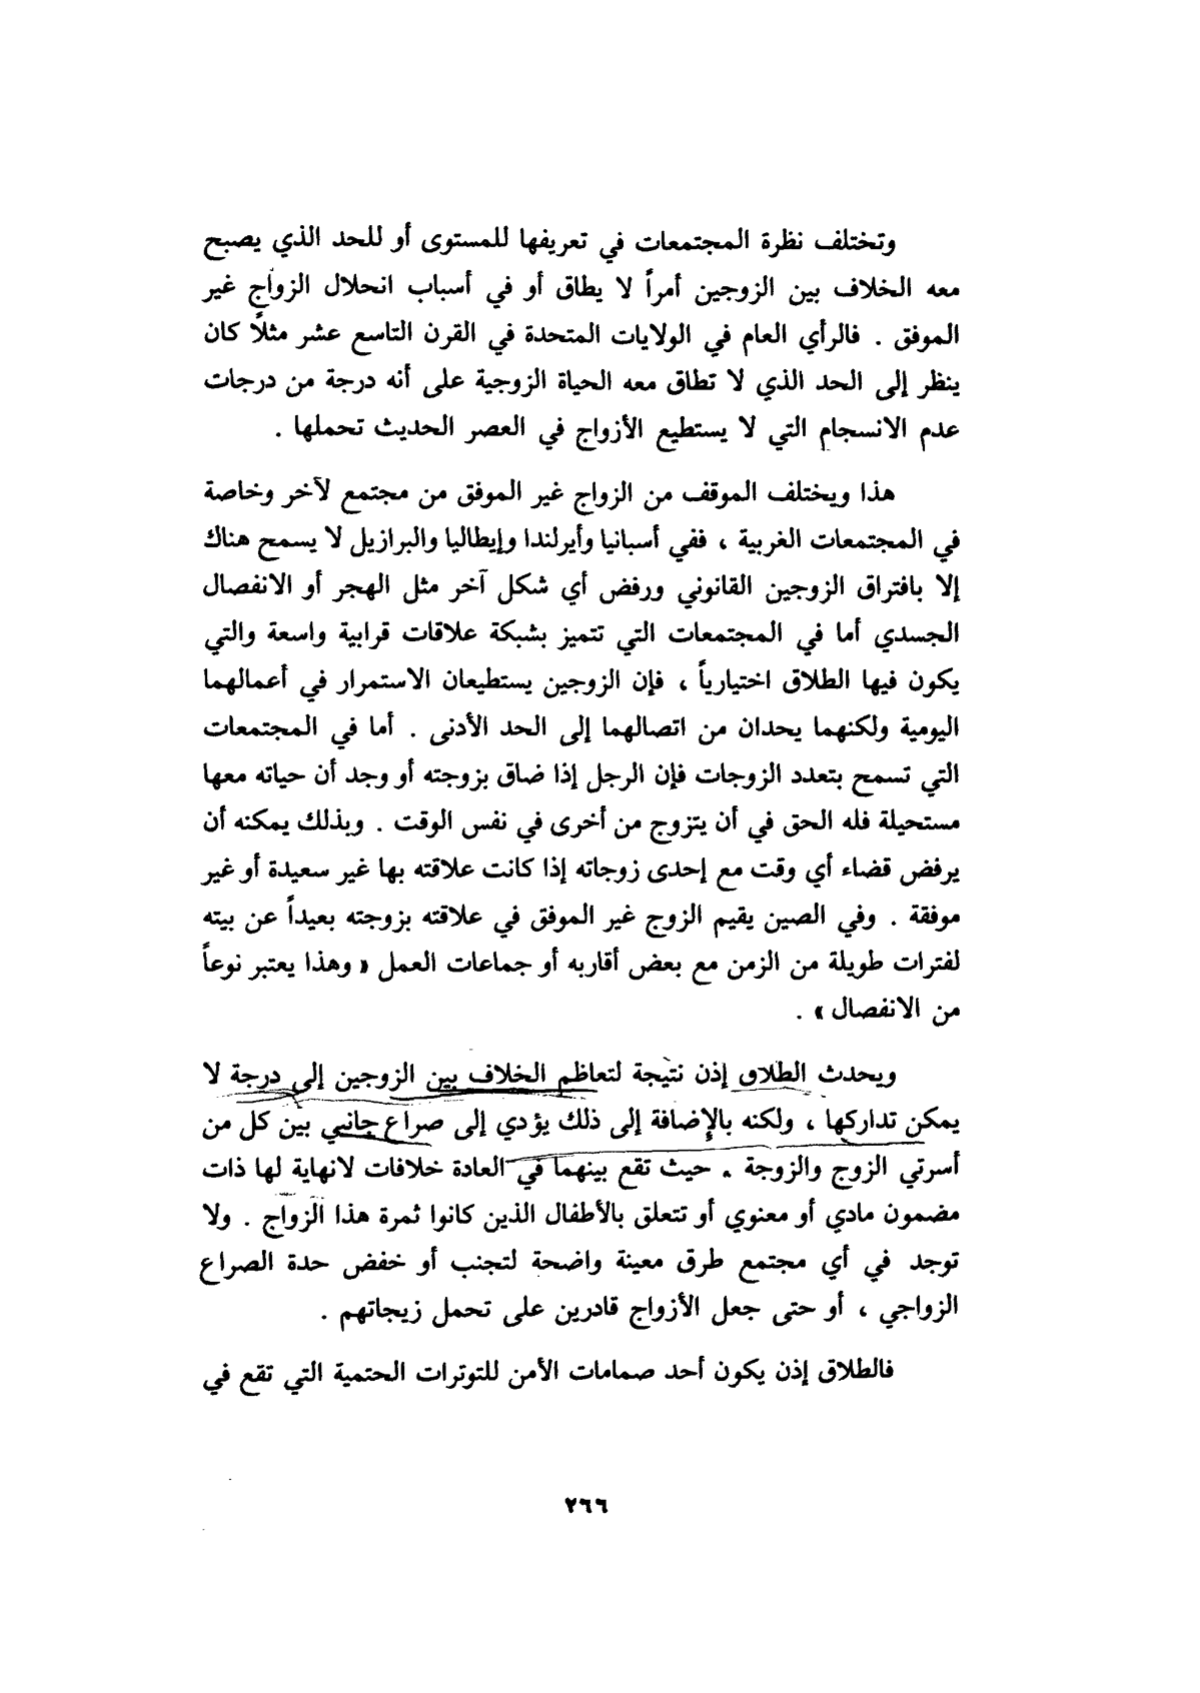 وتختلف نظرة المجتمعات في تعريفها للمستوى أو للحد الذي يصبح
معه الخلاف بين الزوجين أمراً لا يطاق أو في أسباب انحلال الزواج غير
الموفق . فالرأي العام في الولايات المتحدة في القرن التاسع عشر مثلاً كان
ينظر إلى الحد الذي لا تطاق معه الحياة الزوجية على أنه درجة من درجات
عدم الانسجام التي لا يستطيع الأزواج في العصر الحديث تحملها .
هذا ويختلف الموقف من الزواج غير الموفق من مجتمع لآخر وخاصة
في المجتمعات الغربية ، ففي أسبانيا وأيرلندا وإيطاليا والبرازيل لا يسمح هناك
إلا بافتراق الزوجين القانوني ورفض أي شكل آخر مثل الهجر أو الانفصال
الجسدي أما في المجتمعات التي تتميز بشبكة علاقات قرابية واسعة والتي
يكون فيها الطلاق اختيارياً ، فإن الزوجين يستطيعان الاستمرار في أعمالهما
اليومية ولكنهما يحدان من اتصالهما إلى الحد الأدنى . أما في المجتمعات
التي تسمح بتعدد الزوجات فإن الرجل إذا ضاق بزوجته أو وجد أن حياته معها
مستحيلة فله الحق في أن يتزوج من أخرى في نفس الوقت . وبذلك يمكنه أن
يرفض قضاء أي وقت مع إحدى زوجاته إذا كانت علاقته بها غير سعيدة أو غير
موفقة . وفي الصين يقيم الزوج غير الموفق في علاقته بزوجته بعيداً عن بيته
لفترات طويلة من الزمن مع بعض أقاربه أو جماعات العمل « وهذا يعتبر نوعاً
من الانفصال » .
ويحدث الطلاق إذن نتيجة لتعاظم الخلاف بين الزوجين إلى درجة لا
يمكن تداركها ، ولكنه بالإضافة إلى ذلك يؤدي إلى صراع جانبي بين كل من
أسرتي الزوج والزوجة . حيث تقع بينهما في العادة خلافات لانهاية لها ذات
مضمون مادي أو معنوي أو تتعلق بالأطفال الذين كانوا ثمرة هذا الزواج . ولا
توجد في أي مجتمع طرق معينة واضحة لتجنب أو خفض حدة الصراع
الزواجي ، أو حتى جعل الأزواج قادرين على تحمل زيجاتهم .
فالطلاق إذن يكون أحد صمامات الأمن للتوترات الحتمية التي تقع في
٢٦٦